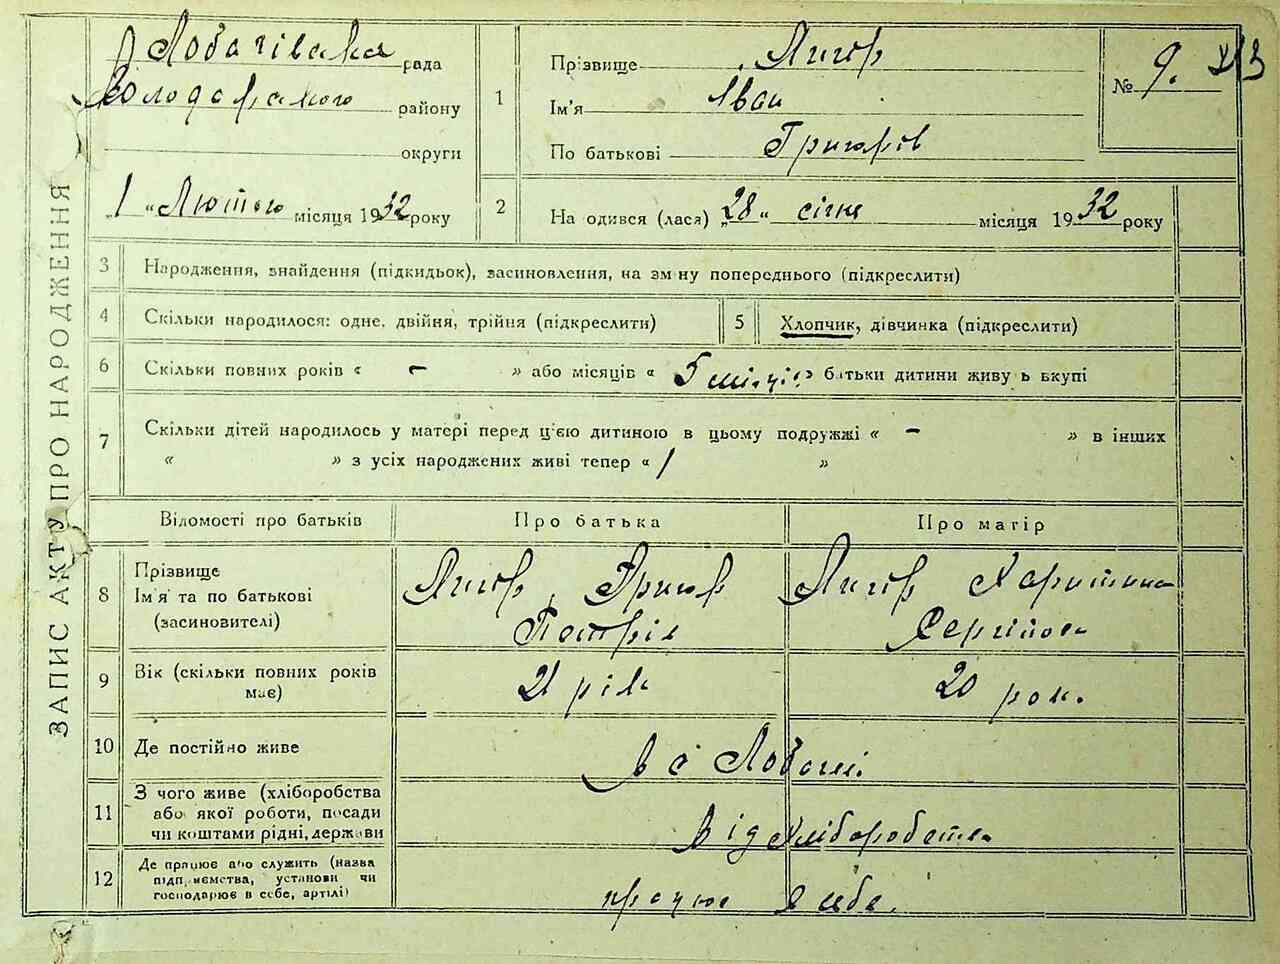 ЗАПИС АКТУ ПРО НАРОДЖЕННЯ
Лобачівська рада
Володарського району
округи
„1“ Лютого місяця 1932 року
1
Прізвище Лигор
Ім'я Іван
По батькові Григорів
№ 9.
2
На одився (лася) „28“ січня місяця 1932 року
3 Народження, знайдення (підкидьок), засиновлення, на зміну попереднього (підкреслити)
4 Скільки народилося: одне, двійня, трійня (підкреслити)
5 Хлопчик, дівчинка (підкреслити)
6 Скільки повних років « - » або місяців « 5 » батьки дитини живуть вкупі
7 Скільки дітей народилось у матері перед цією дитиною в цьому подружжі « - » в інших
« » з усіх народжених живі тепер « 1 »
Відомості про батьків Про батька Про матір
8 Прізвище
Ім'я та по батькові
(засиновителі)
Лигор Григор
Петрів
Лигор Харитина
Сергіївна
9 Вік (скільки повних років
має)
21 рік
20 рок.
10 Де постійно живе
в с Лобачі
11 З чого живе (хліборобства
або якої роботи, посади
чи коштами рідні, держави
Від хліборобства
12 Де працює або служить (назва
підприємства, установи чи
господарює в себе, артілі)
працює в себе.